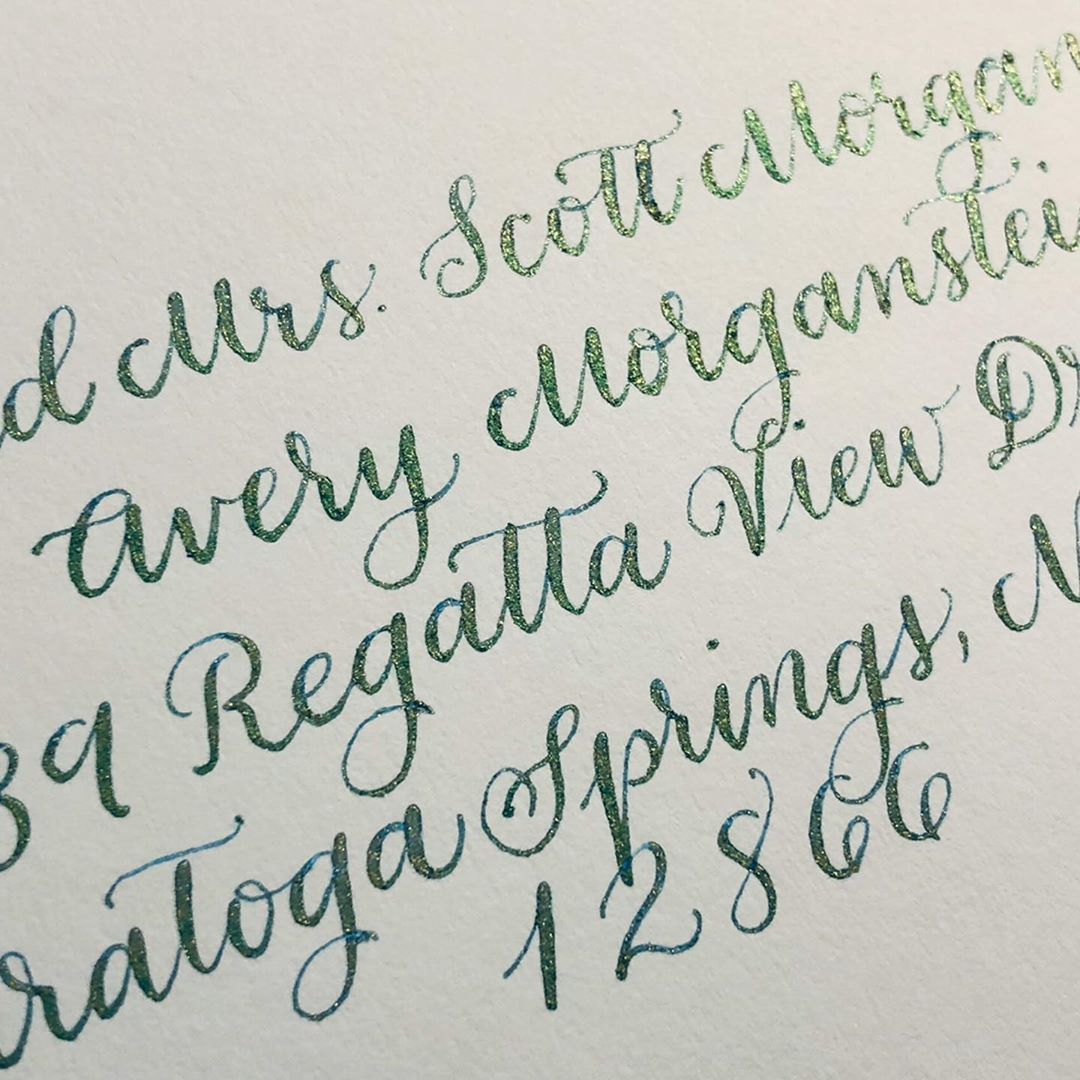 d Mrs. Scott Morgan
Avery Morganstei
39 Regatta View Dr
ratoga Springs, N
12866